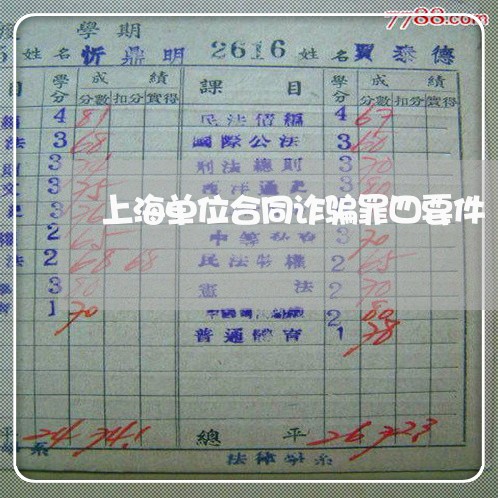 7788.com
學期
姓名 忻鼎明 2616 姓名 賈泰德
目 學分 成績 課目 學分 成績
分數 扣分 實得 分數 扣分 實得
4 81 民法債編 4 67
法 3 68 國際公法 3 60
3 刑法總則 3 70
文 3 75 3 80
上海单位合同诈骗罪四要件
2 65 3 70
法 2 68 68 民法物權 2 65
3 80 憲法 2 70
1 70 2 80
普通體育 1 78
平 24 74.1 總平 26 72.3
系 法律學系